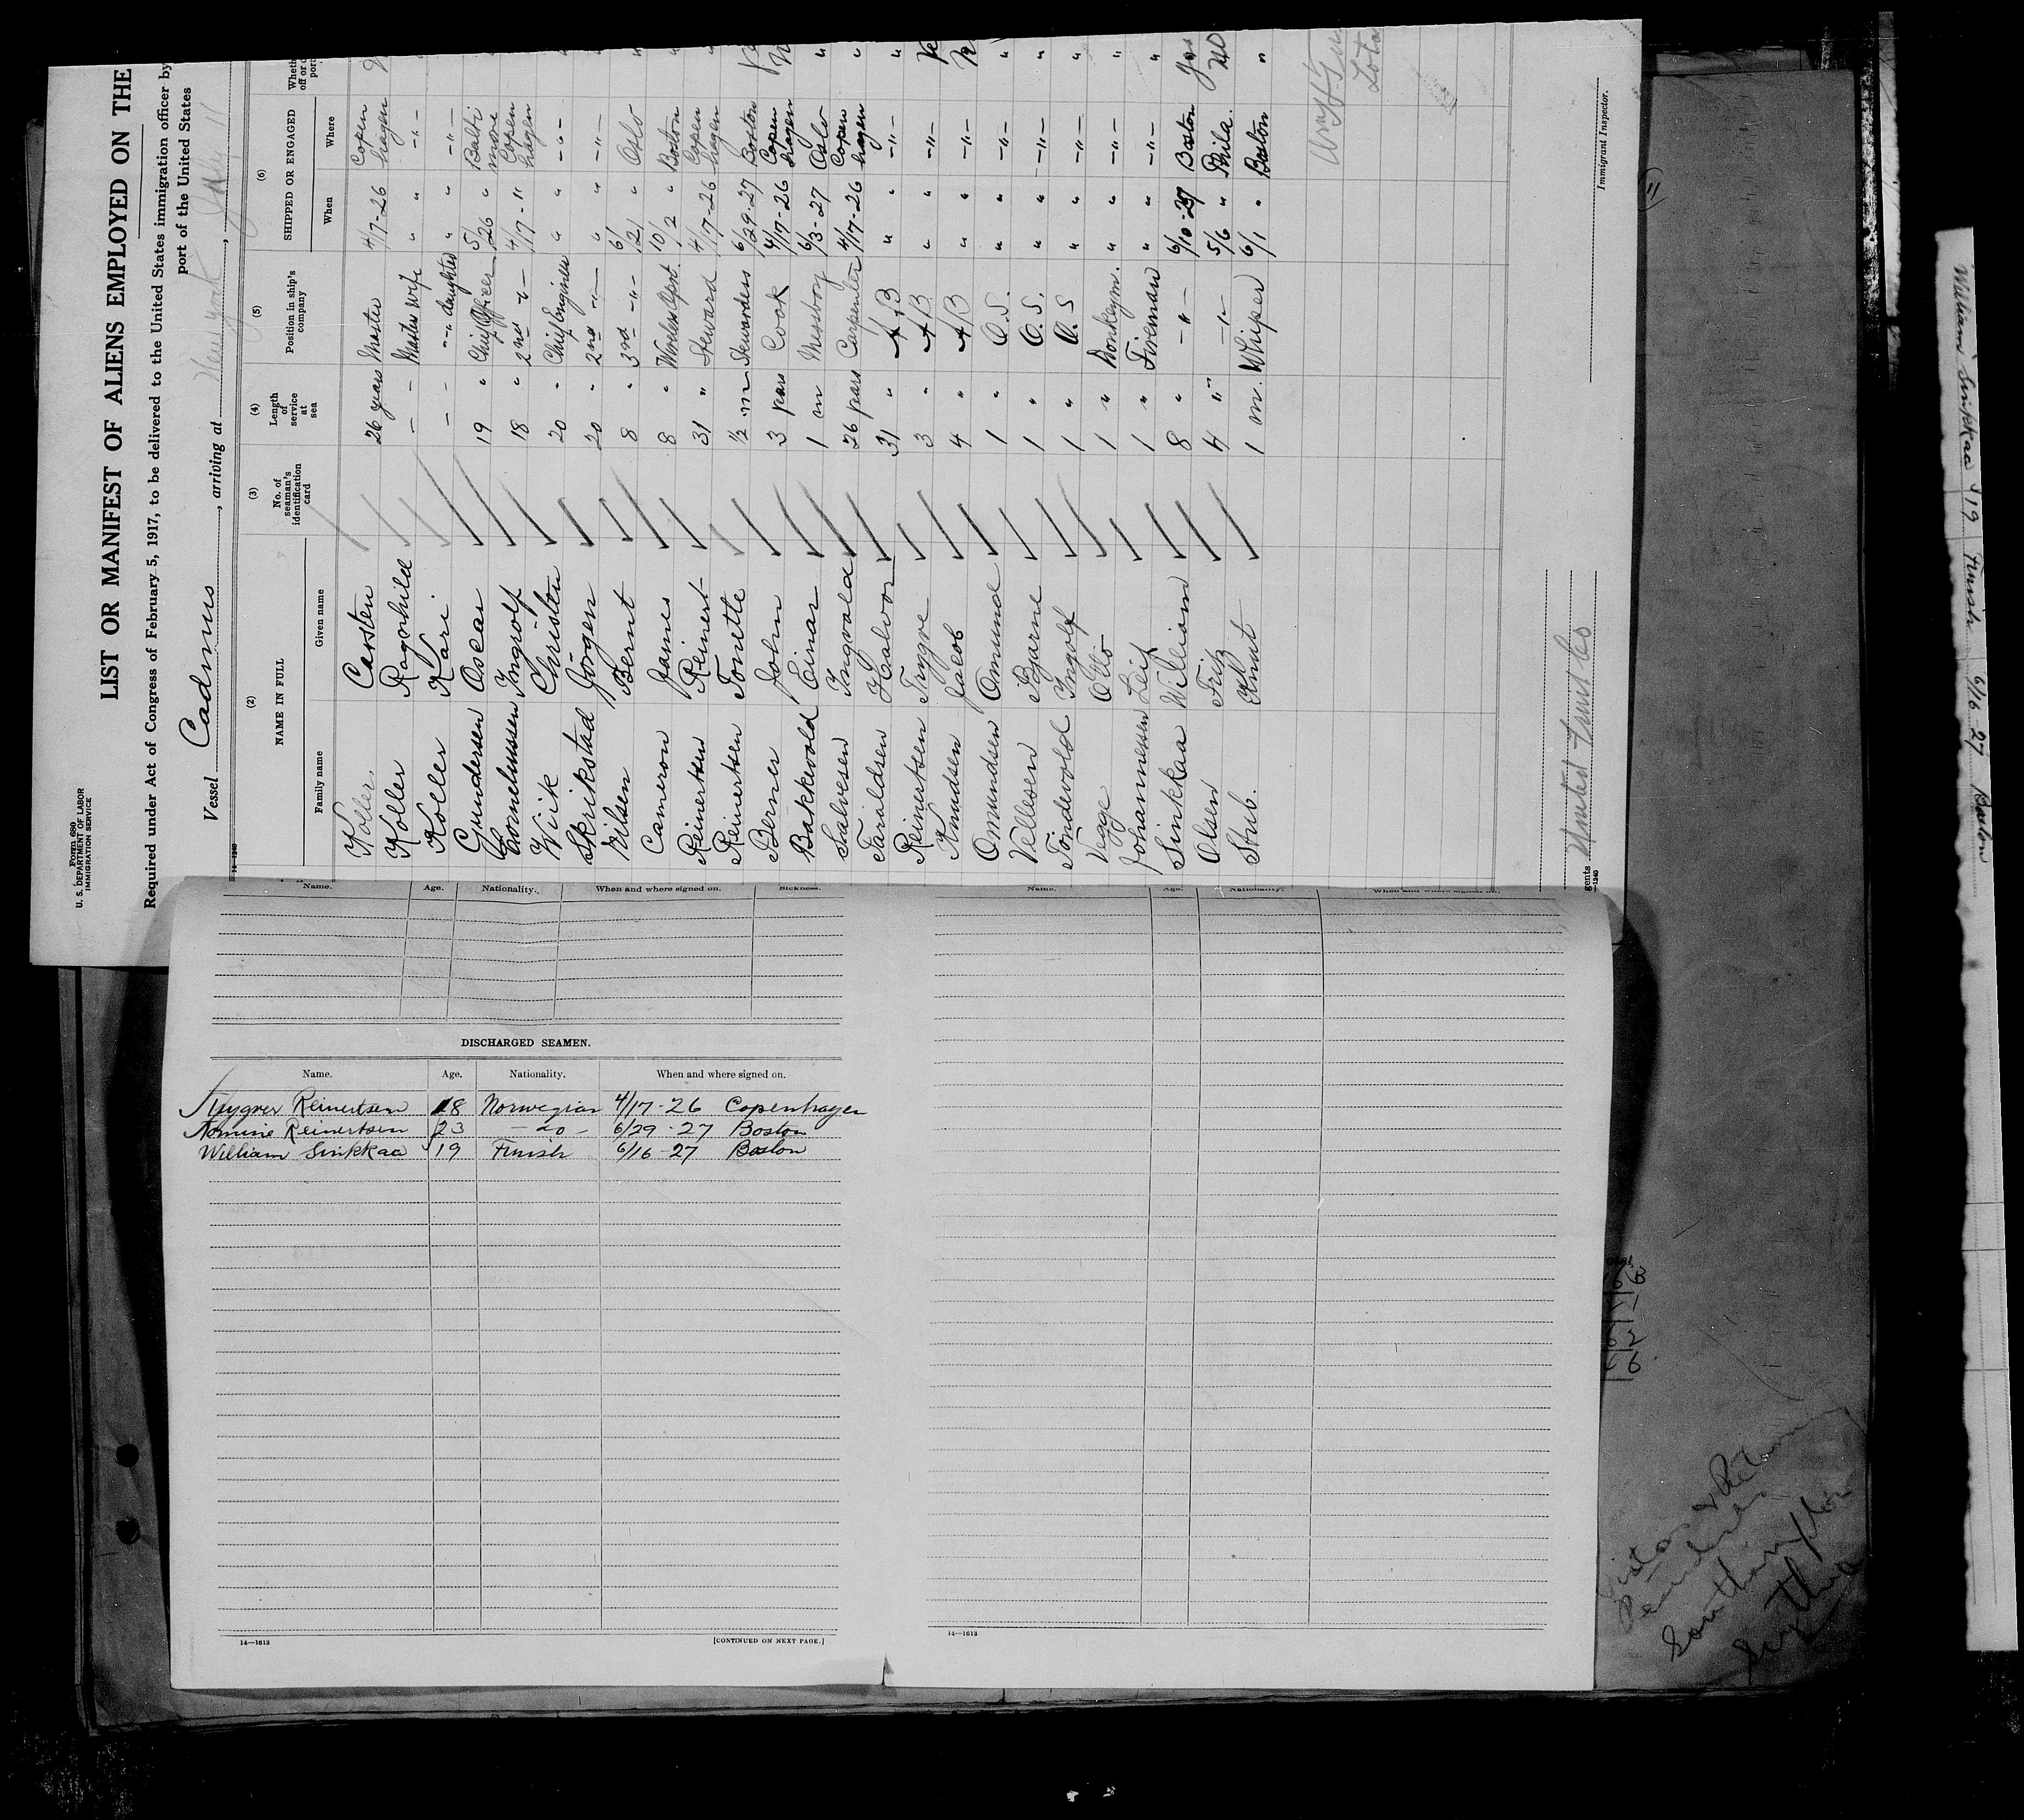 U. S. DEPARTMENT OF LABOR
IMMIGRATION SERVICE
Form 680
LIST OR MANIFEST OF ALIENS EMPLOYED ON THE
Required under Act of Congress of February 5, 1917, to be delivered to the United States immigration officer by
port of the United States
Vessel Cadmus, arriving at New York, July 11
(2) (3) (4) (5) (6)
NAME IN FULL No. of seaman's identification card Length of service at sea Position in ship's company SHIPPED OR ENGAGED
Family name Given name When Where
Koller Carsten 26 years Master 4/17-26 Copenhagen
Koller Ragnhild – – Masters wife " " -"-
Koller Kari – – -"- daughter " " -"-
Gundersen Oscar 19 " Chief Officer 5/26 " Baltimore
Corneliussen Ingrolf 18 " 2nd -"- 4/17-" Copenhagen
Wiik Christen 20 " Chief Engineer " " -"-
Skrikstad Jörgen 20 " 2nd -"- " " -"-
Nilsen Bernt 8 " 3rd -"- 6/21 " Oslo
Cameron James 8 " Wireless Oprt. 10/2 " Boston
Reinertsen Reinert 31 " Steward 4/17-26 Copenhagen
Reinertsen Tomine ½ m Stewardess 6/29-27 Boston
Berner John 3 years Cook 4/17-26 Copenhagen
Bakkevold Einar 1 m Messboy 6/3-27 Oslo
Salvesen Ingvald 26 years Carpenter 4/17-26 Copenhagen
Taraldsen Halvor 31 " AB " " -"-
Reinertsen Tryggve 3 " AB " " -"-
Knudsen Jacob 4 " AB " " -"-
Omundsen Omund 1 " O.S. " " -"-
Vellesen Bjarne 1 " O.S. " " -"-
Töndevold Ingolf 1 " O.S " " -"-
Vegge Otto 1 " Donkeym. " " -"-
Johannessen Leif 1 " Fireman " " -"-
Sinkkaa William 8 " -"- 6/10-27 Boston Yes
Olsen Fritz 4 " -"- 5/6 " Phila. NO
Stub. Knut 1 m. Whiper 6/1 " Boston "
United Fruit Co
Immigrant Inspector.
Name. Age. Nationality. When and where signed on. Sickness.
Name. Age. Nationality. When and where signed on.
DISCHARGED SEAMEN.
Name. Age. Nationality. When and where signed on.
Reinertsen 18 Norwegian 4/17-26 Copenhagen
Reinertsen 23 -do- 6/29-27 Boston
William Sinkkaa 19 Finish 6/16-27 Boston
14—1613 [CONTINUED ON NEXT PAGE.]
14—1613
William Sinkkaa 19 Finish 6/16-27 Boston
Southampton